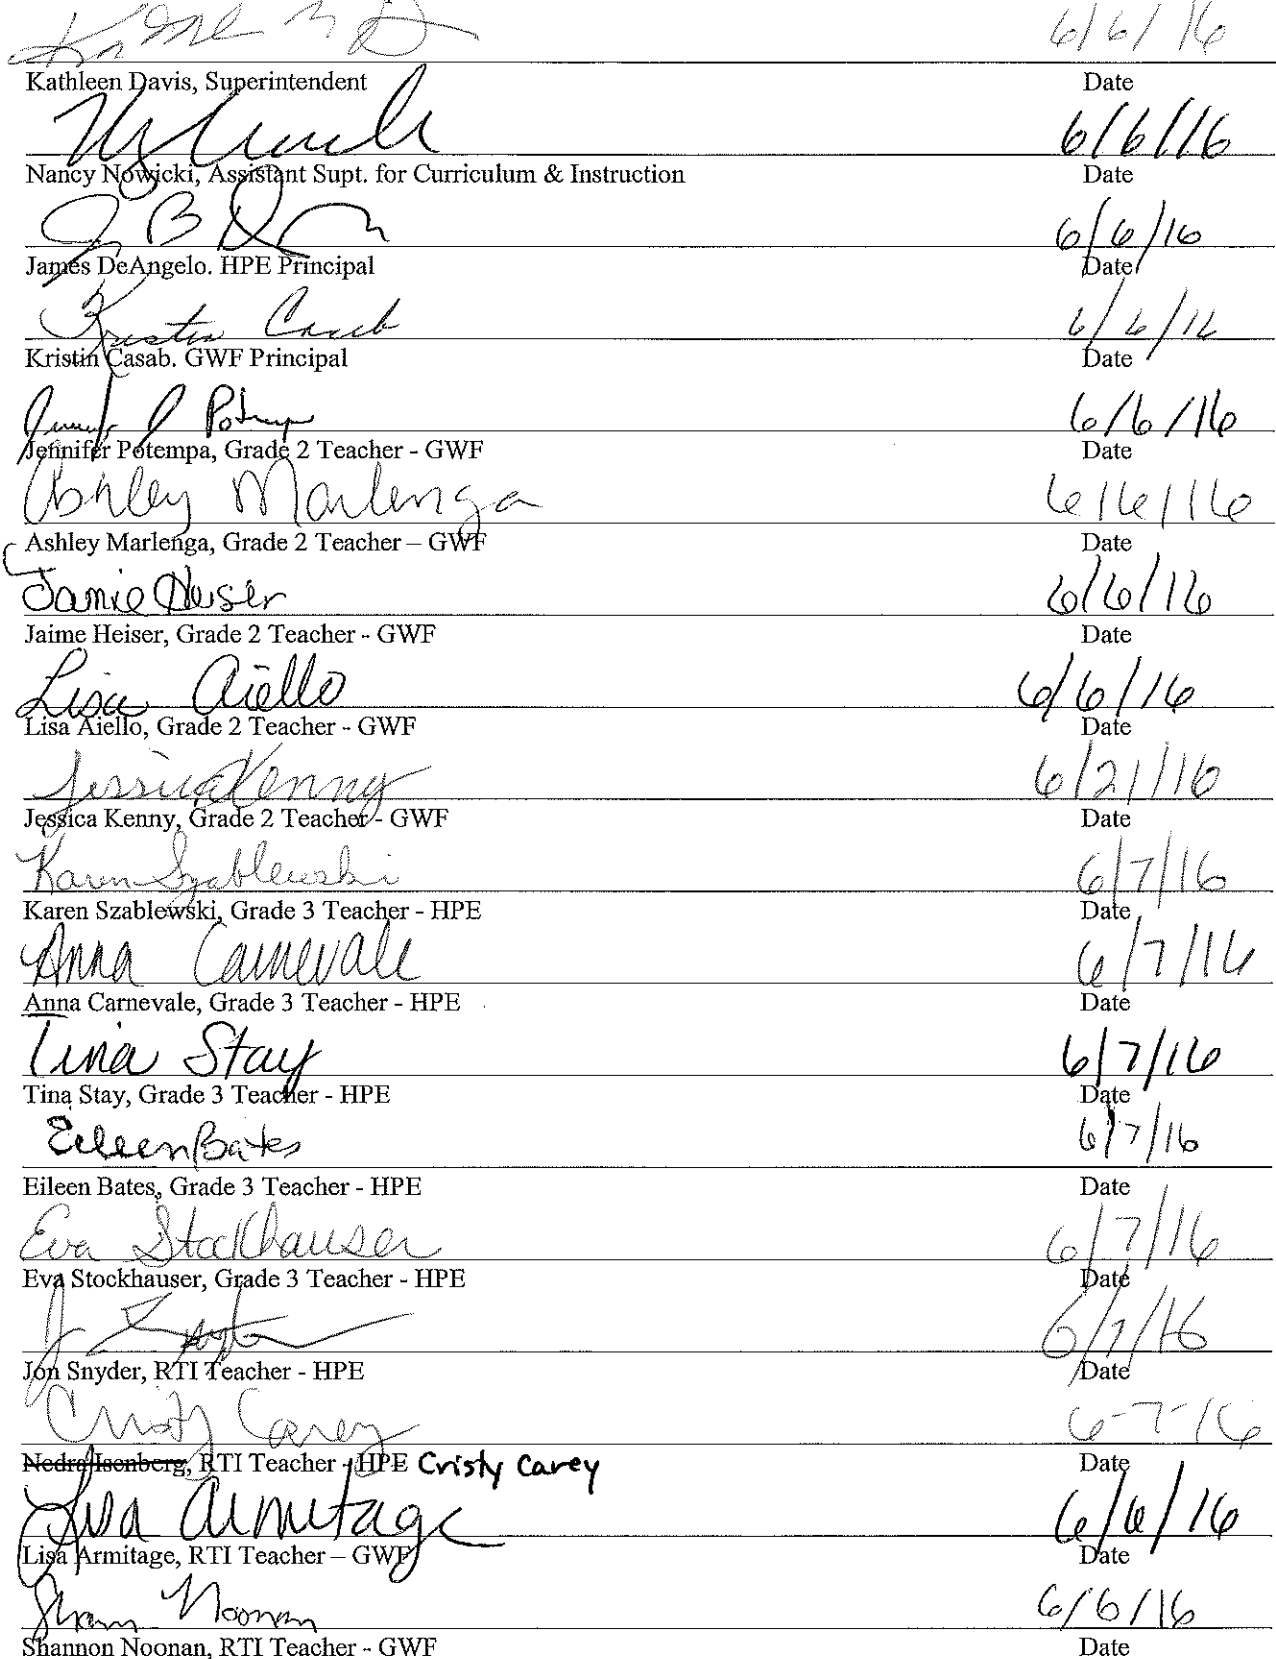 6/6/16
Kathleen Davis, Superintendent Date
6/6/16
Nancy Nowicki, Assistant Supt. for Curriculum & Instruction Date
6/6/16
James DeAngelo. HPE Principal Date
Kristin Casab 6/6/16
Kristin Casab. GWF Principal Date
Jennifer J Potempa 6/6/16
Jennifer Potempa, Grade 2 Teacher - GWF Date
Ashley Marlenga 6/6/16
Ashley Marlenga, Grade 2 Teacher – GWF Date
Jamie Heiser 6/6/16
Jaime Heiser, Grade 2 Teacher - GWF Date
Lisa Aiello 6/6/16
Lisa Aiello, Grade 2 Teacher - GWF Date
Jessica Kenny 6/21/16
Jessica Kenny, Grade 2 Teacher - GWF Date
Karen Szablewski 6/7/16
Karen Szablewski, Grade 3 Teacher - HPE Date
Anna Carnevale 6/7/16
Anna Carnevale, Grade 3 Teacher - HPE Date
Tina Stay 6/7/16
Tina Stay, Grade 3 Teacher - HPE Date
Eileen Bates 6/7/16
Eileen Bates, Grade 3 Teacher - HPE Date
Eva Stockhauser 6/7/16
Eva Stockhauser, Grade 3 Teacher - HPE Date
6/7/16
Jon Snyder, RTI Teacher - HPE Date
Cristy Carey 6-7-16
Nedra Isenberg, RTI Teacher - HPE Cristy Carey Date
Lisa Armitage 6/6/16
Lisa Armitage, RTI Teacher – GWF Date
Shannon Noonan 6/6/16
Shannon Noonan, RTI Teacher - GWF Date